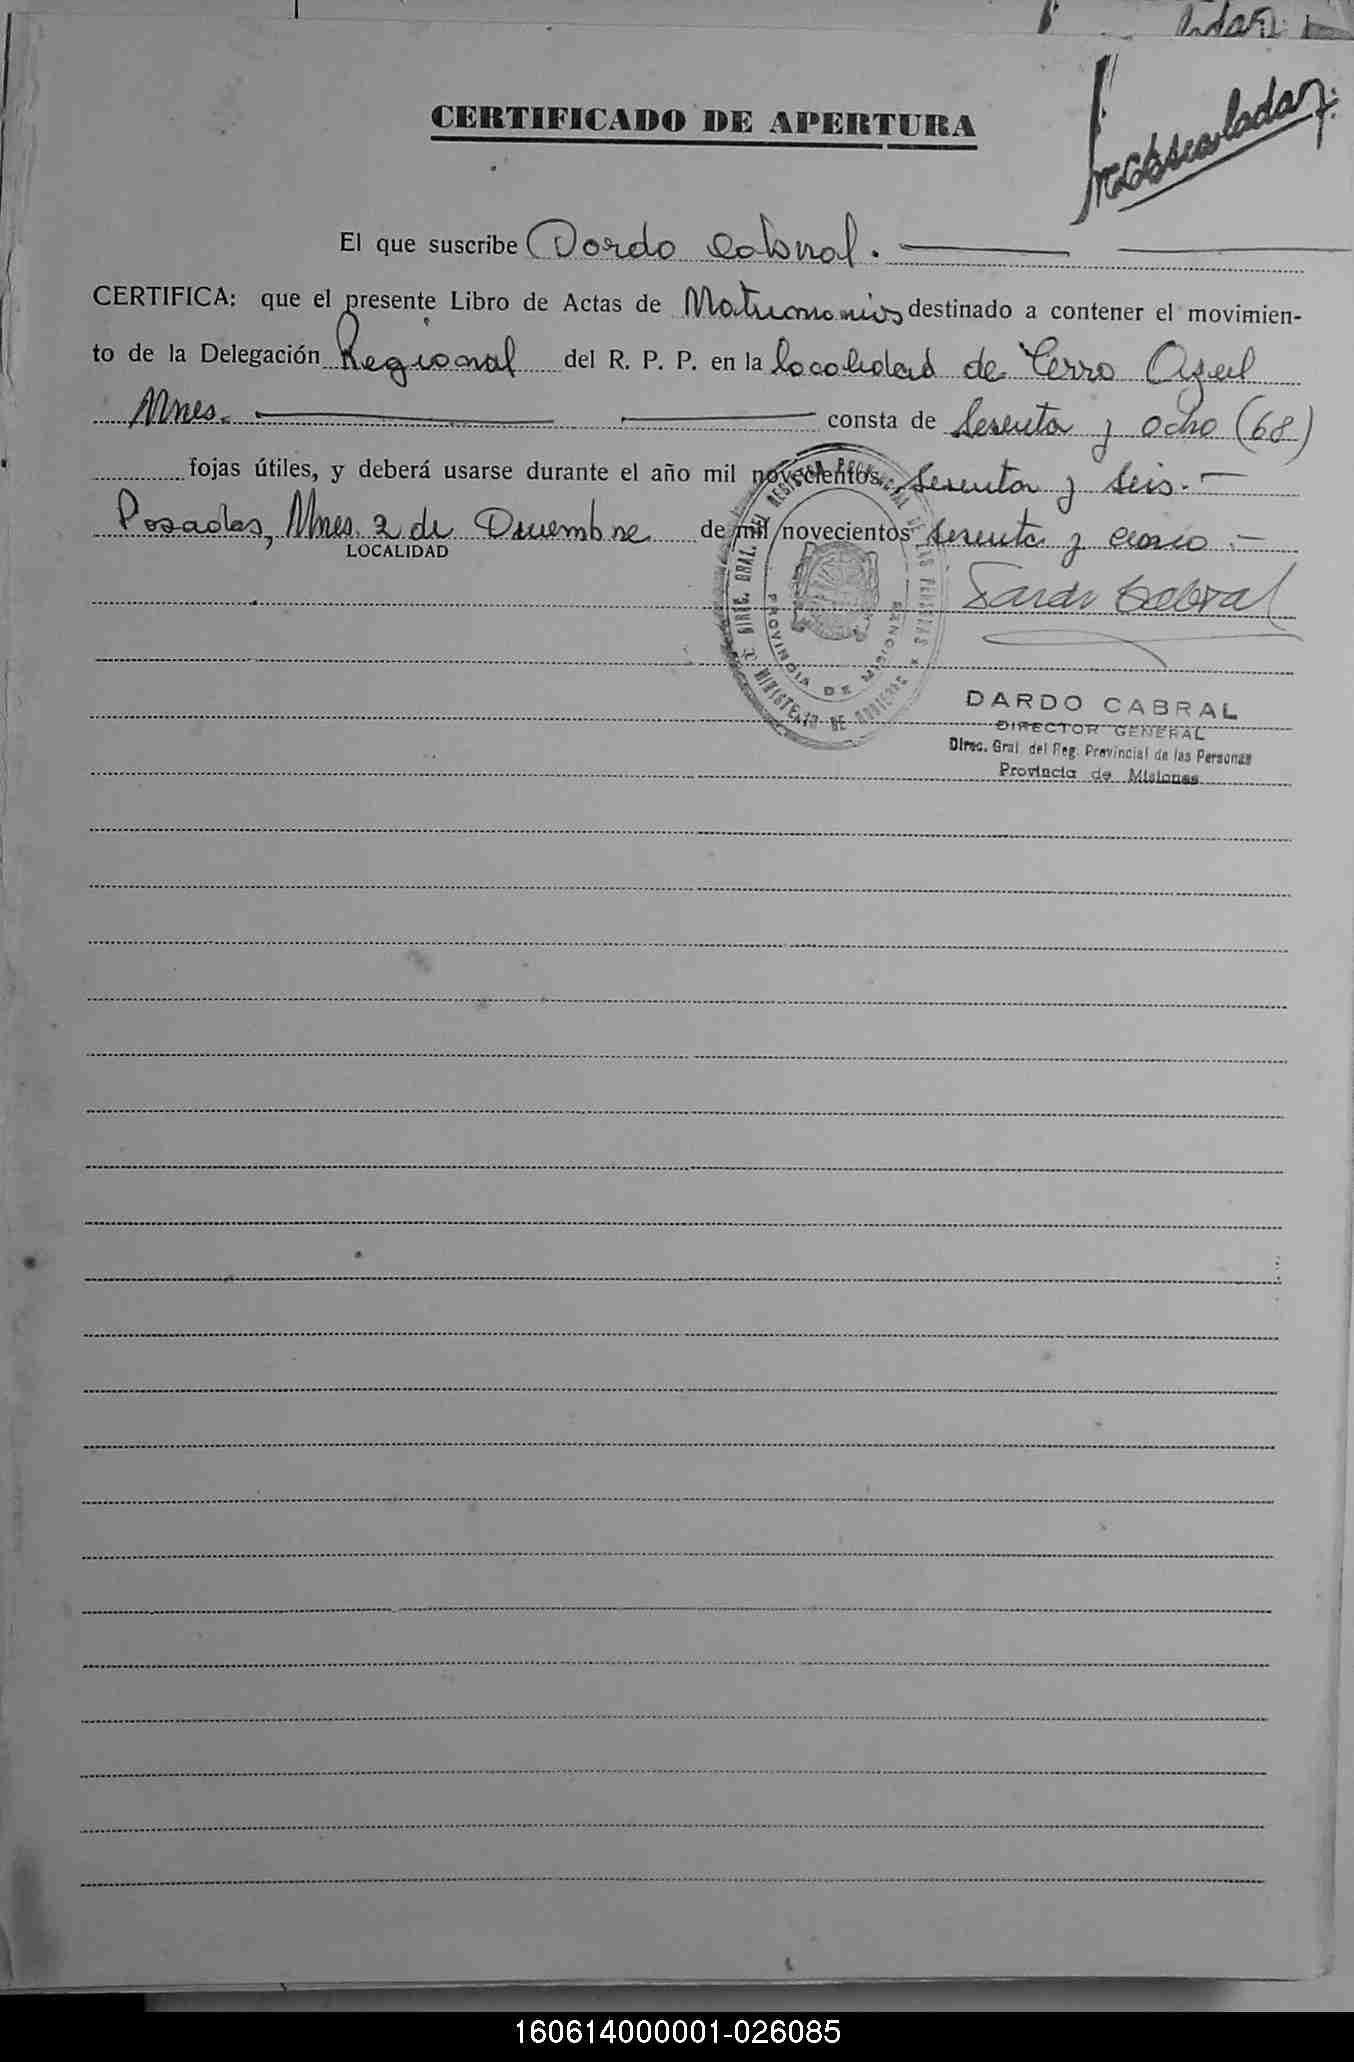 CERTIFICADO DE APERTURA
El que suscribe Dardo Cabral. 
CERTIFICA: que el presente Libro de Actas de Matrimonios destinado a contener el movimien-
to de la Delegación Regional del R. P. P. en la localidad de Cerro Azul
Mnes. consta de Sesenta y ocho (68)
fojas útiles, y deberá usarse durante el año mil novecientos Sesenta y Seis.-
Posadas, Mnes. 2 de Diciembre de mil novecientos sesenta y cinco.-
LOCALIDAD
Dardo Cabral
DIREC. GRAL. DEL REGISTRO PROVINCIAL DE LAS PERSONAS
MINISTERIO DE GOBIERNO
PROVINCIA DE MISIONES
DARDO CABRAL
DIRECTOR GENERAL
Direc. Gral. del Reg. Provincial de las Personas
Provincia de Misiones
160614000001-026085